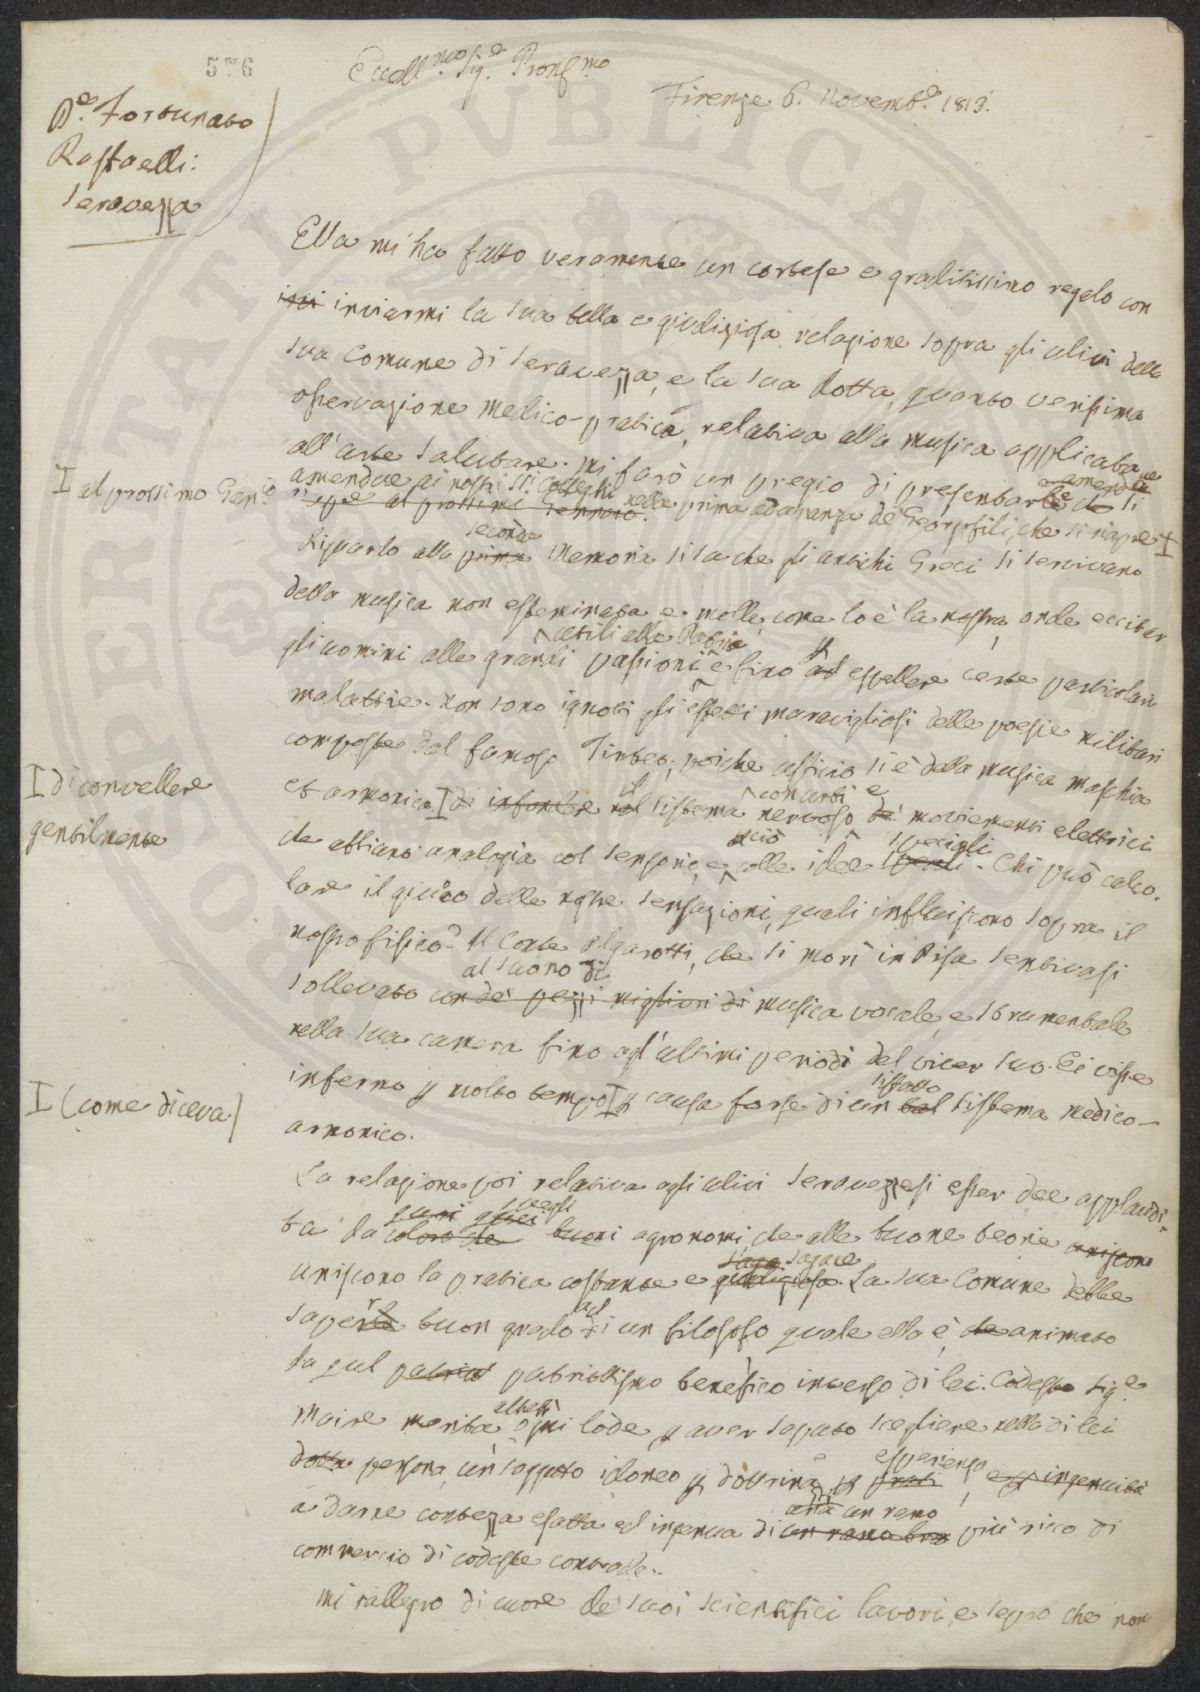 576
Eccell.mo Sig.e Pron mo
Firenze 6. Novemb.e 1813.
D.e Fortunato
Raffaelli:
Seravezza
Ella mi ha fatto veramente un cortese e graditissimo regalo con
inviarmi la sua bella e giudiziosa relazione sopra gli ulivi della
sua Comune di Seravezza, e la sua dotta, quanto verissima
osservazione medico-pratica, relativa alla musica applicata
all'arte salutare. mi farò un pregio di presentar le amendue
amendue ai nostri SS.i Colleghi nella prima adunanza de' Georgofili, che si riapre I
riapre al prossimo Gennaio.
I al prossimo Gen.io
Riguardo alla prima seconda Memoria si sa che gli antichi Greci si servivano
della musica non effeminata e molle, come lo è la nostra, onde eccitar
gli uomini alle grandi passioni utili alla Patria e fino ad espellere certe particolari
malattie. non sono ignoti gli effetti maravigliosi delle poesie militari
composte dal famoso Tirteo, poichè ufficio si è della musica maschia
I di convellere
gentilmente
et armonica I di infondere il nel sistema nervoso con urti e de' moviementi elettrici
che abbiano analogia col sensorio, e colle idee speciali. Chi può calco-
lare il giuoco delle nostre sensazioni, quali influiscono sopra il
nostro fisico? Il Conte Algarotti, che si morì in Pisa sentivasi
sollevato al suono di con de' pezzi migliori di musica vocale, e strumentale
nella sua camera fino agl'ultimi periodi del viver suo. Ei visse
I (come diceva)
infermo p molto tempo I p causa forse di un tal siffatto sistema medico-
armonico.
La relazione poi relativa agli ulivi Seravezzesi esser dee applaudi-
ta da coloro che quei buoni agronomi, che alle buone teorie uniscono
uniscono la pratica costante e giudiziosa sagace. La sua Comune debbe
saper buon grado ad di un filosofo quale ella è, che animato
da quel patriot patriottismo benefico inverso di lei. Codesto Sig.e
Maire merita altresì ogni lode p aver saputo scegliere nella di lei
dotta persona, un soggetto idoneo p dottrina, p prati esperienza, e p ingenuità
a darne contezza esatta ed ingenua di un ramo un ramo più ricco di
commercio di codeste contrade.
Mi rallegro di cuore de' suoi scientifici lavori, e spero che non